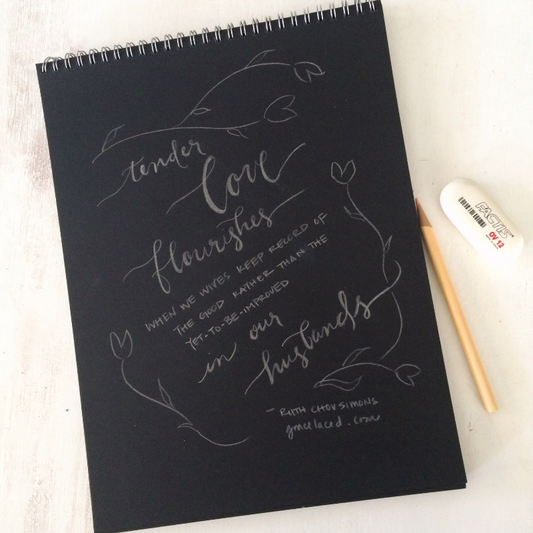 tender
love
flourishes
WHEN WE WIVES KEEP RECORD OF
THE GOOD RATHER THAN THE
YET-TO-BE-IMPROVED
in our
husbands
- RUTH CHOU SIMONS
gracelaced.com
FACTIS
OV 12